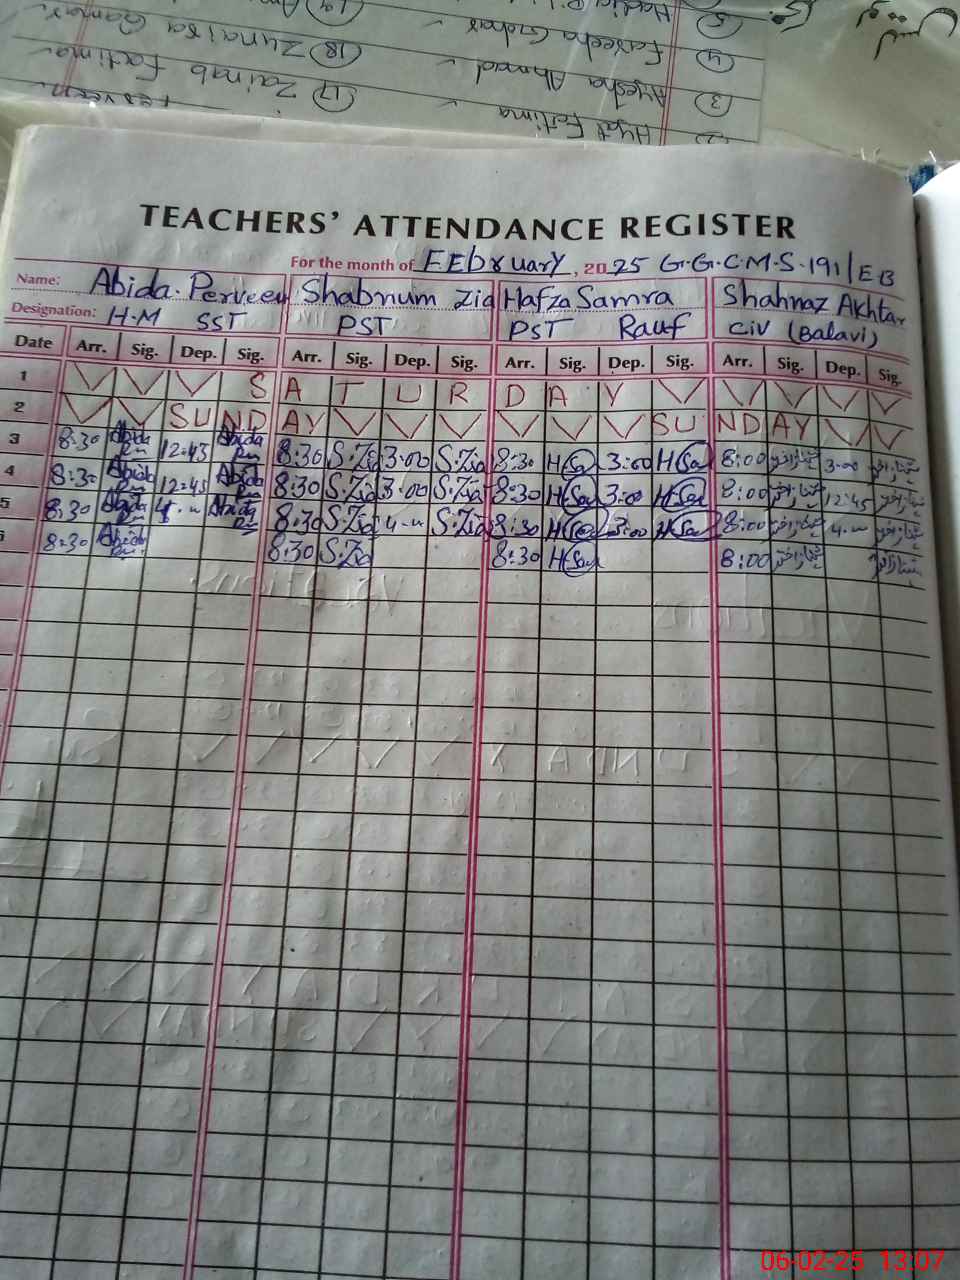 Hyat Fatima
3 Ayesha Ahmad
4 Fareeha Gohar
5
17 Zainab Fatima
18 Zunaira
19
TEACHERS' ATTENDANCE REGISTER
For the month of FEbruary, 2025 G.G.C.M.S.191/EB
Name: Abida Perveen Shabnum Zia Hafza Samra Shahnaz Akhtar
Designation: H.M SST PST PST Rauf Civ (Balavi)
Date Arr. Sig. Dep. Sig. Arr. Sig. Dep. Sig. Arr. Sig. Dep. Sig. Arr. Sig. Dep. Sig.
1 S A T U R D A Y
2 SUNDAY SUNDAY
3 8:30 Abida 12:45 Abida 8:30 S.Zia 3:00 S.Zia 8:30 3:00 8:00 شہناز اختر 3:00 شہناز اختر
4 8:30 Abida 12:45 Abida 8:30 S.Zia 3:00 S.Zia 8:30 3:00 8:00 شہناز اختر 12:45 شہناز اختر
5 8:30 Abida Abida 8:30 S.Zia S.Zia 8:30 3:00 8:00 شہناز اختر شہناز اختر
6 8:30 Abida 8:30 S.Zia 8:30 8:00 شہناز اختر شہناز اختر
06-02-25 13:07